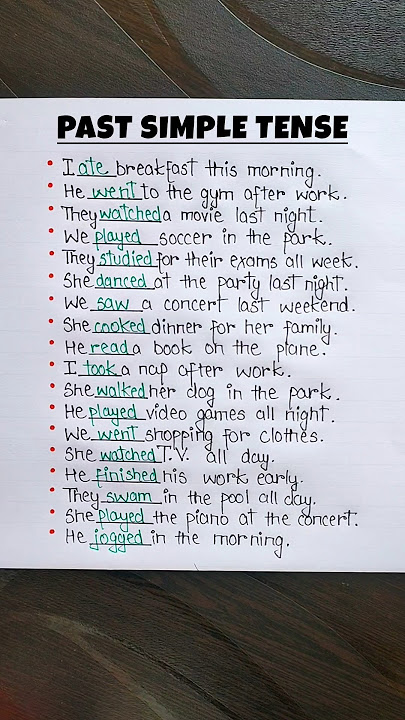 PAST SIMPLE TENSE
• I ate breakfast this morning.
• He went to the gym after work.
• They watched a movie last night.
• We played soccer in the park.
• They studied for their exams all week.
• She danced at the party last night.
• We saw a concert last weekend.
• She cooked dinner for her family.
• He read a book on the plane.
• I took a nap after work.
• She walked her dog in the park.
• He played video games all night.
• We went shopping for clothes.
• She watched T.V. all day.
• He finished his work early.
• They swam in the pool all day.
• She played the piano at the concert.
• He jogged in the morning.